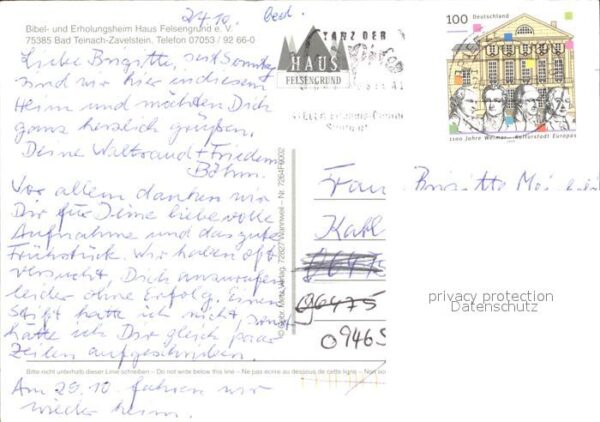 24.10. bed.
Bibel- und Erholungsheim Haus Felsengrund e. V.
75385 Bad Teinach-Zavelstein, Telefon 07053 / 92 66-0
Liebe Brigitte, seit Sonntag
sind wir hier in diesem
Heim und möchten Dich
ganz herzlich grüßen.
Deine Waltraud + Friedem.
Böhm.
Vor allem danken wir
Dir für Deine liebevolle
Aufnahme und das gute
Frühstück. Wir haben oft
versucht Dich anzurufen
leider ohne Erfolg. Einen
Stift hatte ich nicht, sonst
hätte ich Dir gleich paar
Zeilen aufgeschrieben.
Bitte nicht unterhalb dieser Linie schreiben – Do not write below this line – Ne pas écrire au dessous de cette ligne – Non
Am 29.10. fahren wir
wieder heim.
HAUS
FELSENGRUND
TANZ DER
© Gebr. Metz Verlag, 72827 Wannweil – Nr. 7264F9002
100 Deutschland
1100 Jahre Weimar - Kulturstadt Europas
1999
Frau Brigitte
Karl
96475
09465
privacy protection
Datenschutz